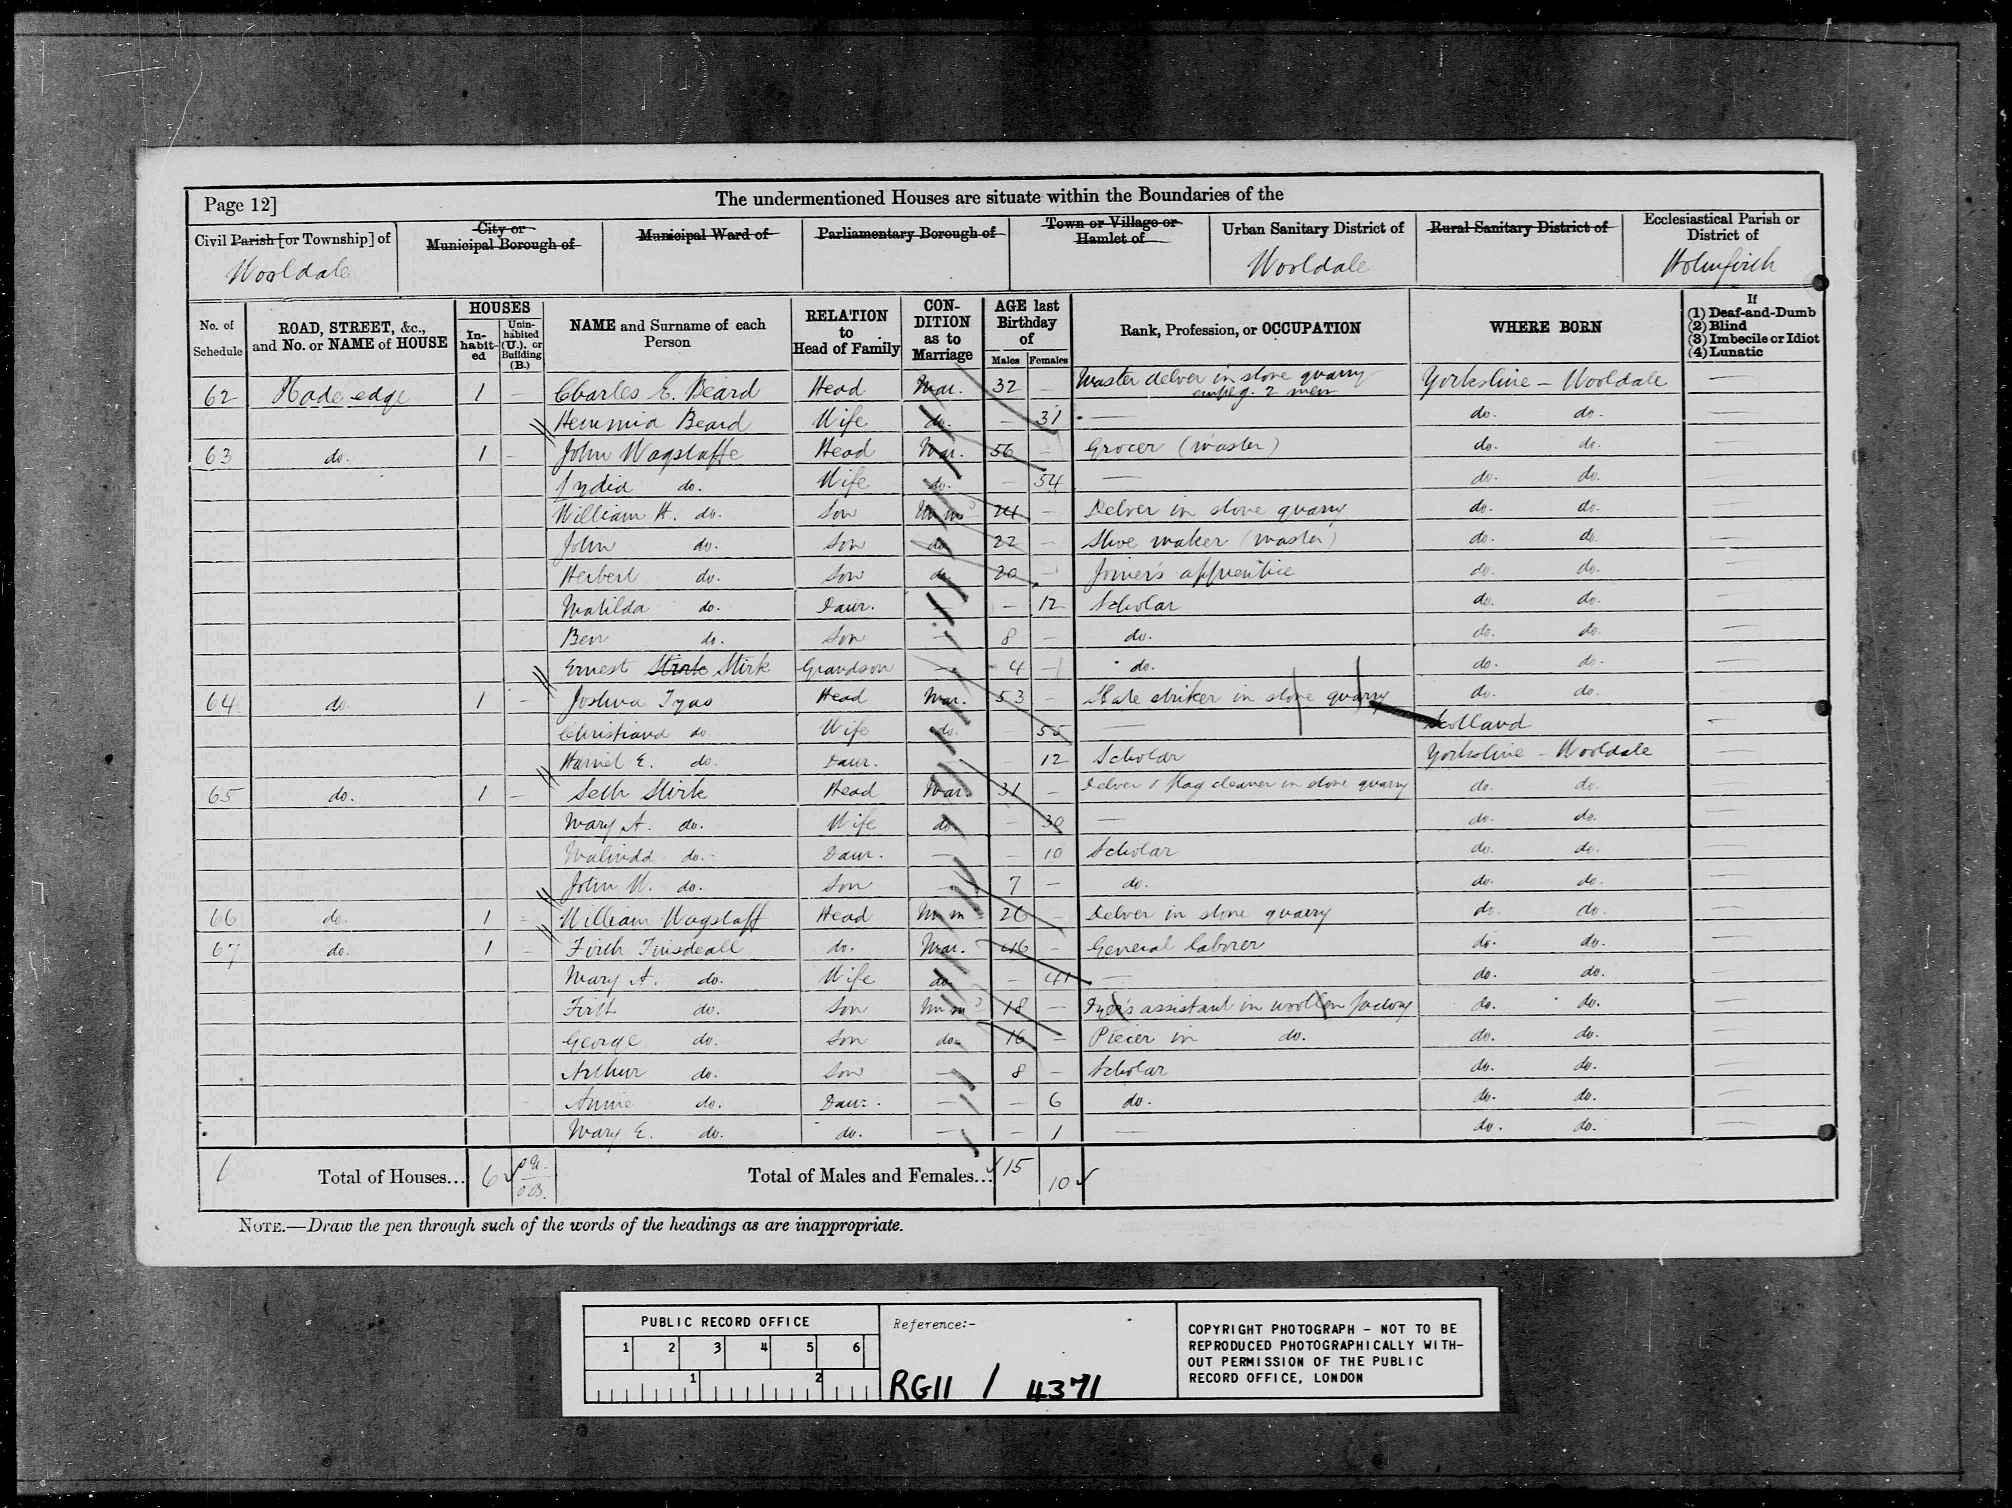 Page 12]
The undermentioned Houses are situate within the Boundaries of the
Civil Parish [or Township] of
City or Municipal Borough of
Municipal Ward of
Parliamentary Borough of
Town or Village or Hamlet of
Urban Sanitary District of
Rural Sanitary District of
Ecclesiastical Parish or District of
Wooldale
Wooldale
Holmfirth
No. of Schedule
ROAD, STREET, &c., and No. or NAME of HOUSE
HOUSES
In-habit-ed
Unin-habited (U.), or Building (B.)
NAME and Surname of each Person
RELATION to Head of Family
CON-DITION as to Marriage
AGE last Birthday of
Males
Females
Rank, Profession, or OCCUPATION
WHERE BORN
If
(1) Deaf-and-Dumb
(2) Blind
(3) Imbecile or Idiot
(4) Lunatic
62 Hade edge 1 — Charles E. Beard Head Mar. 32 — Master delver in stone quarry emplg. 2 men Yorkshire — Wooldale —
Beard Wife do. — 31 — do. do. —
63 do. 1 — John Wagstaffe Head Mar. 56 — Grocer (master) do. do. —
Lydia do. Wife do. — 54 — do. do. —
William H. do. Son Unm 24 — Delver in stone quarry do. do. —
John do. Son do 22 — Shoe maker (master) do. do —
Herbert do. Son do. 20 — Joiner's apprentice do. do. —
Matilda do. Daur. — 12 Scholar do. do. —
Ben do. Son — 8 — do. do. do. —
Ernest Stirk Stirk Grandson — 4 — do. do. do. —
64 do. 1 — Joshua Tyas Head Mar. 53 — Slate striker in stone quarry do. do. —
Christiana do Wife do. 55 — Scotland —
Harriet E. do. Daur. 12 Scholar Yorkshire — Wooldale —
65 do. 1 — Seth Stirk Head Mar. 31 — Delver & flag cleaver in stone quarry do. do. —
Mary A. do. Wife do — 30 — do. do. —
Malinda do. Daur. — — 10 Scholar do. do. —
John W. do. Son — 7 — do. do. do. —
66 do. 1 William Wagstaff Head Unm 26 — Delver in stone quarry do. do. —
67 do. 1 — Firth Tinsdeall do. Mar. 46 — General laborer do. do. —
Mary A. do. Wife do. — 41 — do. do. —
Firth do. Son Unm 18 — Dyer's assistant in woollen factory do. do. —
George do. Son do. 16 — Piecer in do. do. do. —
Arthur do. Son — 8 — Scholar do. do. —
Annie do. Daur. — — 6 do. do. do. —
Mary E. do. do. — — 1 — do. do. —
Total of Houses... 6 0 U. 0 B. Total of Males and Females... 15 10
NOTE.—Draw the pen through such of the words of the headings as are inappropriate.
PUBLIC RECORD OFFICE
1 2 3 4 5 6
1 2
Reference:-
RG11 / 4371
COPYRIGHT PHOTOGRAPH – NOT TO BE
REPRODUCED PHOTOGRAPHICALLY WITH-
OUT PERMISSION OF THE PUBLIC
RECORD OFFICE, LONDON